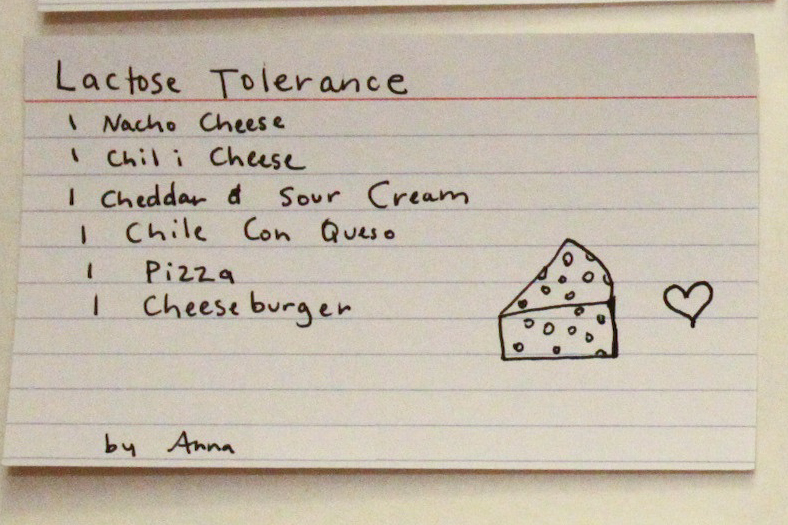 Lactose Tolerance
1 Nacho Cheese
1 Chili Cheese
1 Cheddar & Sour Cream
1 Chile Con Queso
1 Pizza
1 Cheeseburger
by Anna